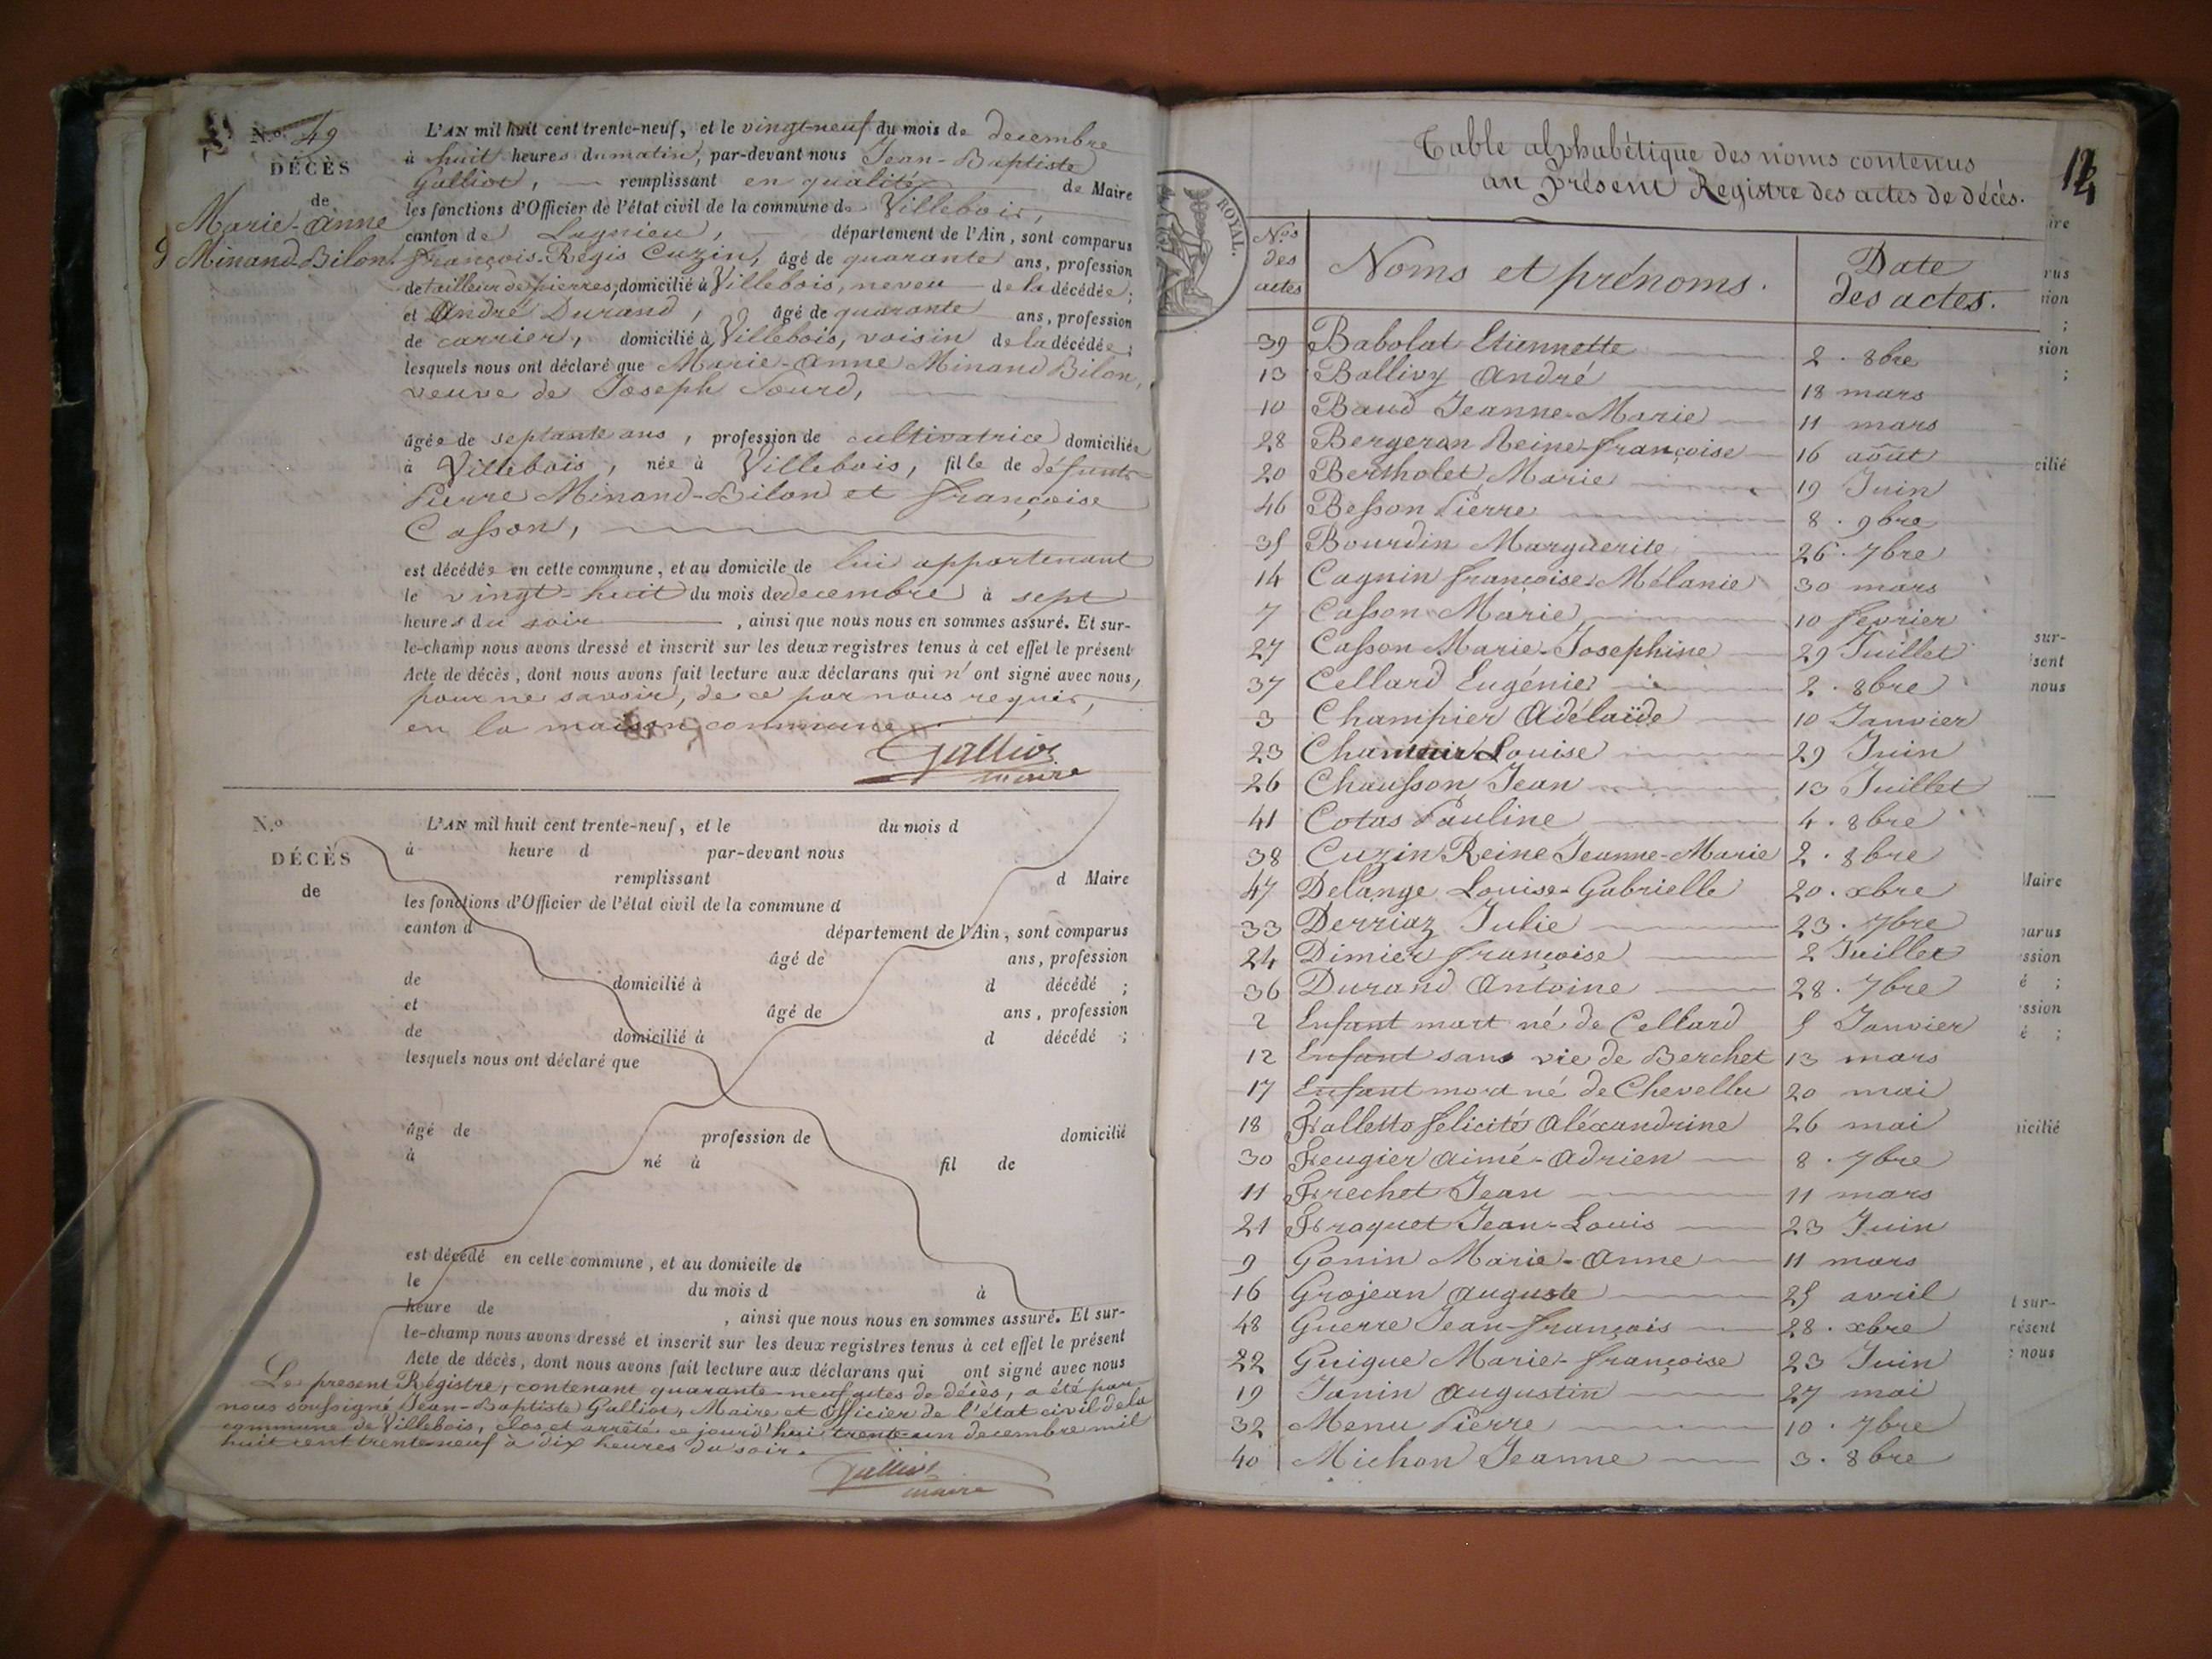 N.º 49
DÉCÈS
de
Marie-Anne
Minand-Bilon.
L'AN mil huit cent trente-neuf, et le vingt-neuf du mois de decembre
à huit heures du matin, par-devant nous Jean-Baptiste
Galliot, remplissant en qualité de Maire
les fonctions d'Officier de l'état civil de la commune de Villebois,
canton de Lagnieu, département de l'Ain, sont comparus
François-Régis Cuzin, âgé de quarante ans, profession
de tailleur de pierres, domicilié à Villebois, neveu de la décédée;
et André Durand, âgé de quarante ans, profession
de carrier, domicilié à Villebois, voisin de la décédée;
lesquels nous ont déclaré que Marie-Anne Minand Bilon,
veuve de Joseph Sourd,
âgée de septante ans, profession de cultivatrice domiciliée
à Villebois, née à Villebois, fille de défunts
Pierre Minand-Bilon et Françoise
Casson,
est décédée en cette commune, et au domicile de lui appartenant
le vingt-huit du mois de decembre à sept
heures du soir, ainsi que nous nous en sommes assuré. Et sur-
le-champ nous avons dressé et inscrit sur les deux registres tenus à cet effet le présent
Acte de décès, dont nous avons fait lecture aux déclarans qui n'ont signé avec nous,
pour ne savoir, de ce par nous requis,
en la maison commune.
Galliot
maire
N.º
DÉCÈS
de
L'AN mil huit cent trente-neuf, et le du mois d
à heure d par-devant nous
remplissant d Maire
les fonctions d'Officier de l'état civil de la commune d
canton d département de l'Ain, sont comparus
âgé de ans, profession
de domicilié à d décédé ;
et âgé de ans, profession
de domicilié à d décédé ;
lesquels nous ont déclaré que
âgé de profession de domicilié
à né à fil de
est décédé en cette commune, et au domicile de
le du mois d à
heure de , ainsi que nous nous en sommes assuré. Et sur-
le-champ nous avons dressé et inscrit sur les deux registres tenus à cet effet le présent
Acte de décès, dont nous avons fait lecture aux déclarans qui ont signé avec nous
Le présent Registre, contenant quarante-neuf actes de décès, a été par
nous soussigné Jean-Baptiste Galliot, Maire et Officier de l'état civil de la
commune de Villebois, clos et arrêté ce jourd'hui trente-un decembre mil
huit cent trente-neuf à dix heures du soir.
Galliot
maire
ROYAL.
Table alphabétique des noms contenus
au présent Registre des actes de décès.
N.os des actes Noms et prénoms. Date des actes.
39 Babolat Etiennette 2. 8bre
13 Ballivy André 18 mars
10 Baud Jeanne-Marie 11 mars
28 Bergeran Reine-françoise 16 août
20 Bertholet Marie 19 Juin
46 Besson Pierre 8. 9bre
35 Bourdin Marguerite 26. 7bre
14 Cagnin françoise-Mélanie 30 mars
7 Casson Marie 10 fevrier
27 Casson Marie-Josephine 29 Juillet
37 Cellard Eugénie 2. 8bre
3 Champier Adélaïde 10 Janvier
23 Louise 29 Juin
26 Chausson Jean 13 Juillet
41 Cotas Pauline 4. 8bre
38 Cuzin Reine Jeanne-Marie 2. 8bre
47 Delange Louise-Gabrielle 20. xbre
33 Derriaz Julie 23. 7bre
24 Dimier françoise 2 Juillet
36 Durand Antoine 28. 7bre
2 Enfant mort né de Cellard 5 Janvier
12 Enfant sans vie de Berchet 13 mars
17 Enfant mort né de Chevellu 20 mai
18 Falletto felicité Aléxandrine 26 mai
30 Feugier Aimé-Adrien 8. 7bre
11 Frechet Jean 11 mars
21 Froquet Jean-Louis 23 Juin
9 Gonin Marie-Anne 11 mars
16 Grojean Auguste 25 avril
48 Guerre Jean-françois 28. xbre
22 Guigue Marie-françoise 23 Juin
19 Janin Augustin 27 mai
32 Menu Pierre 10. 7bre
40 Michon Jeanne 3. 8bre